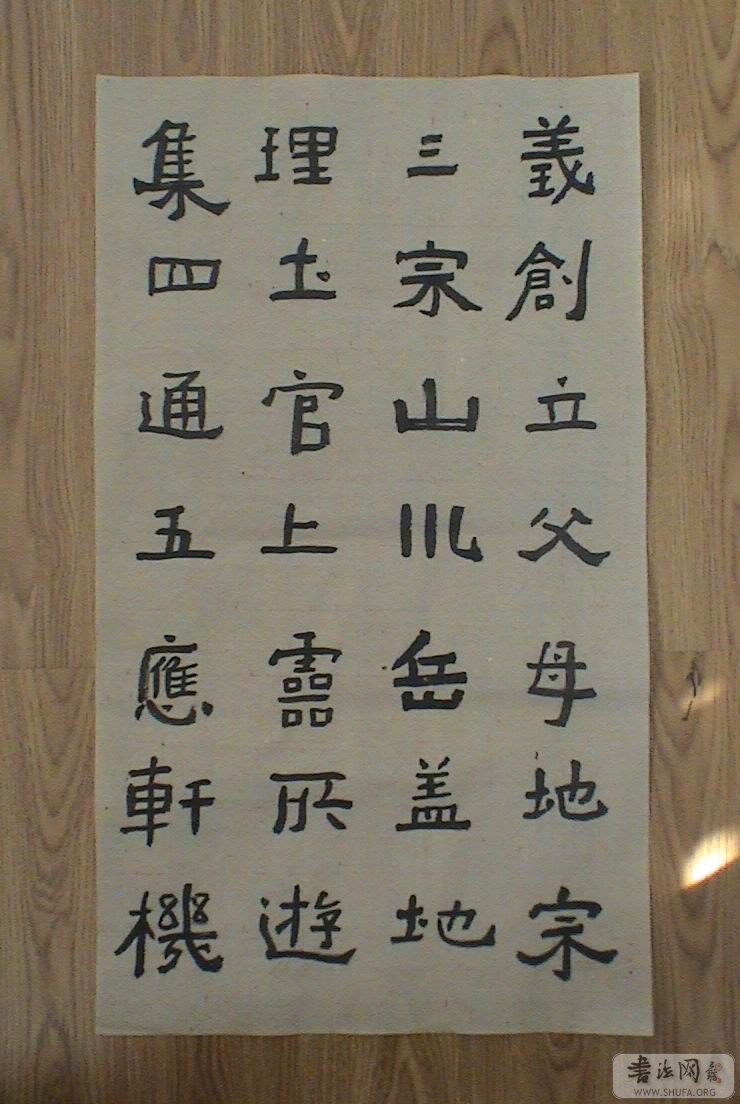 義創立父母地宗
三宗山川岳盖地
理土官上靈所遊
集四通五應軒機
書法网
WWW.SHUFA.ORG